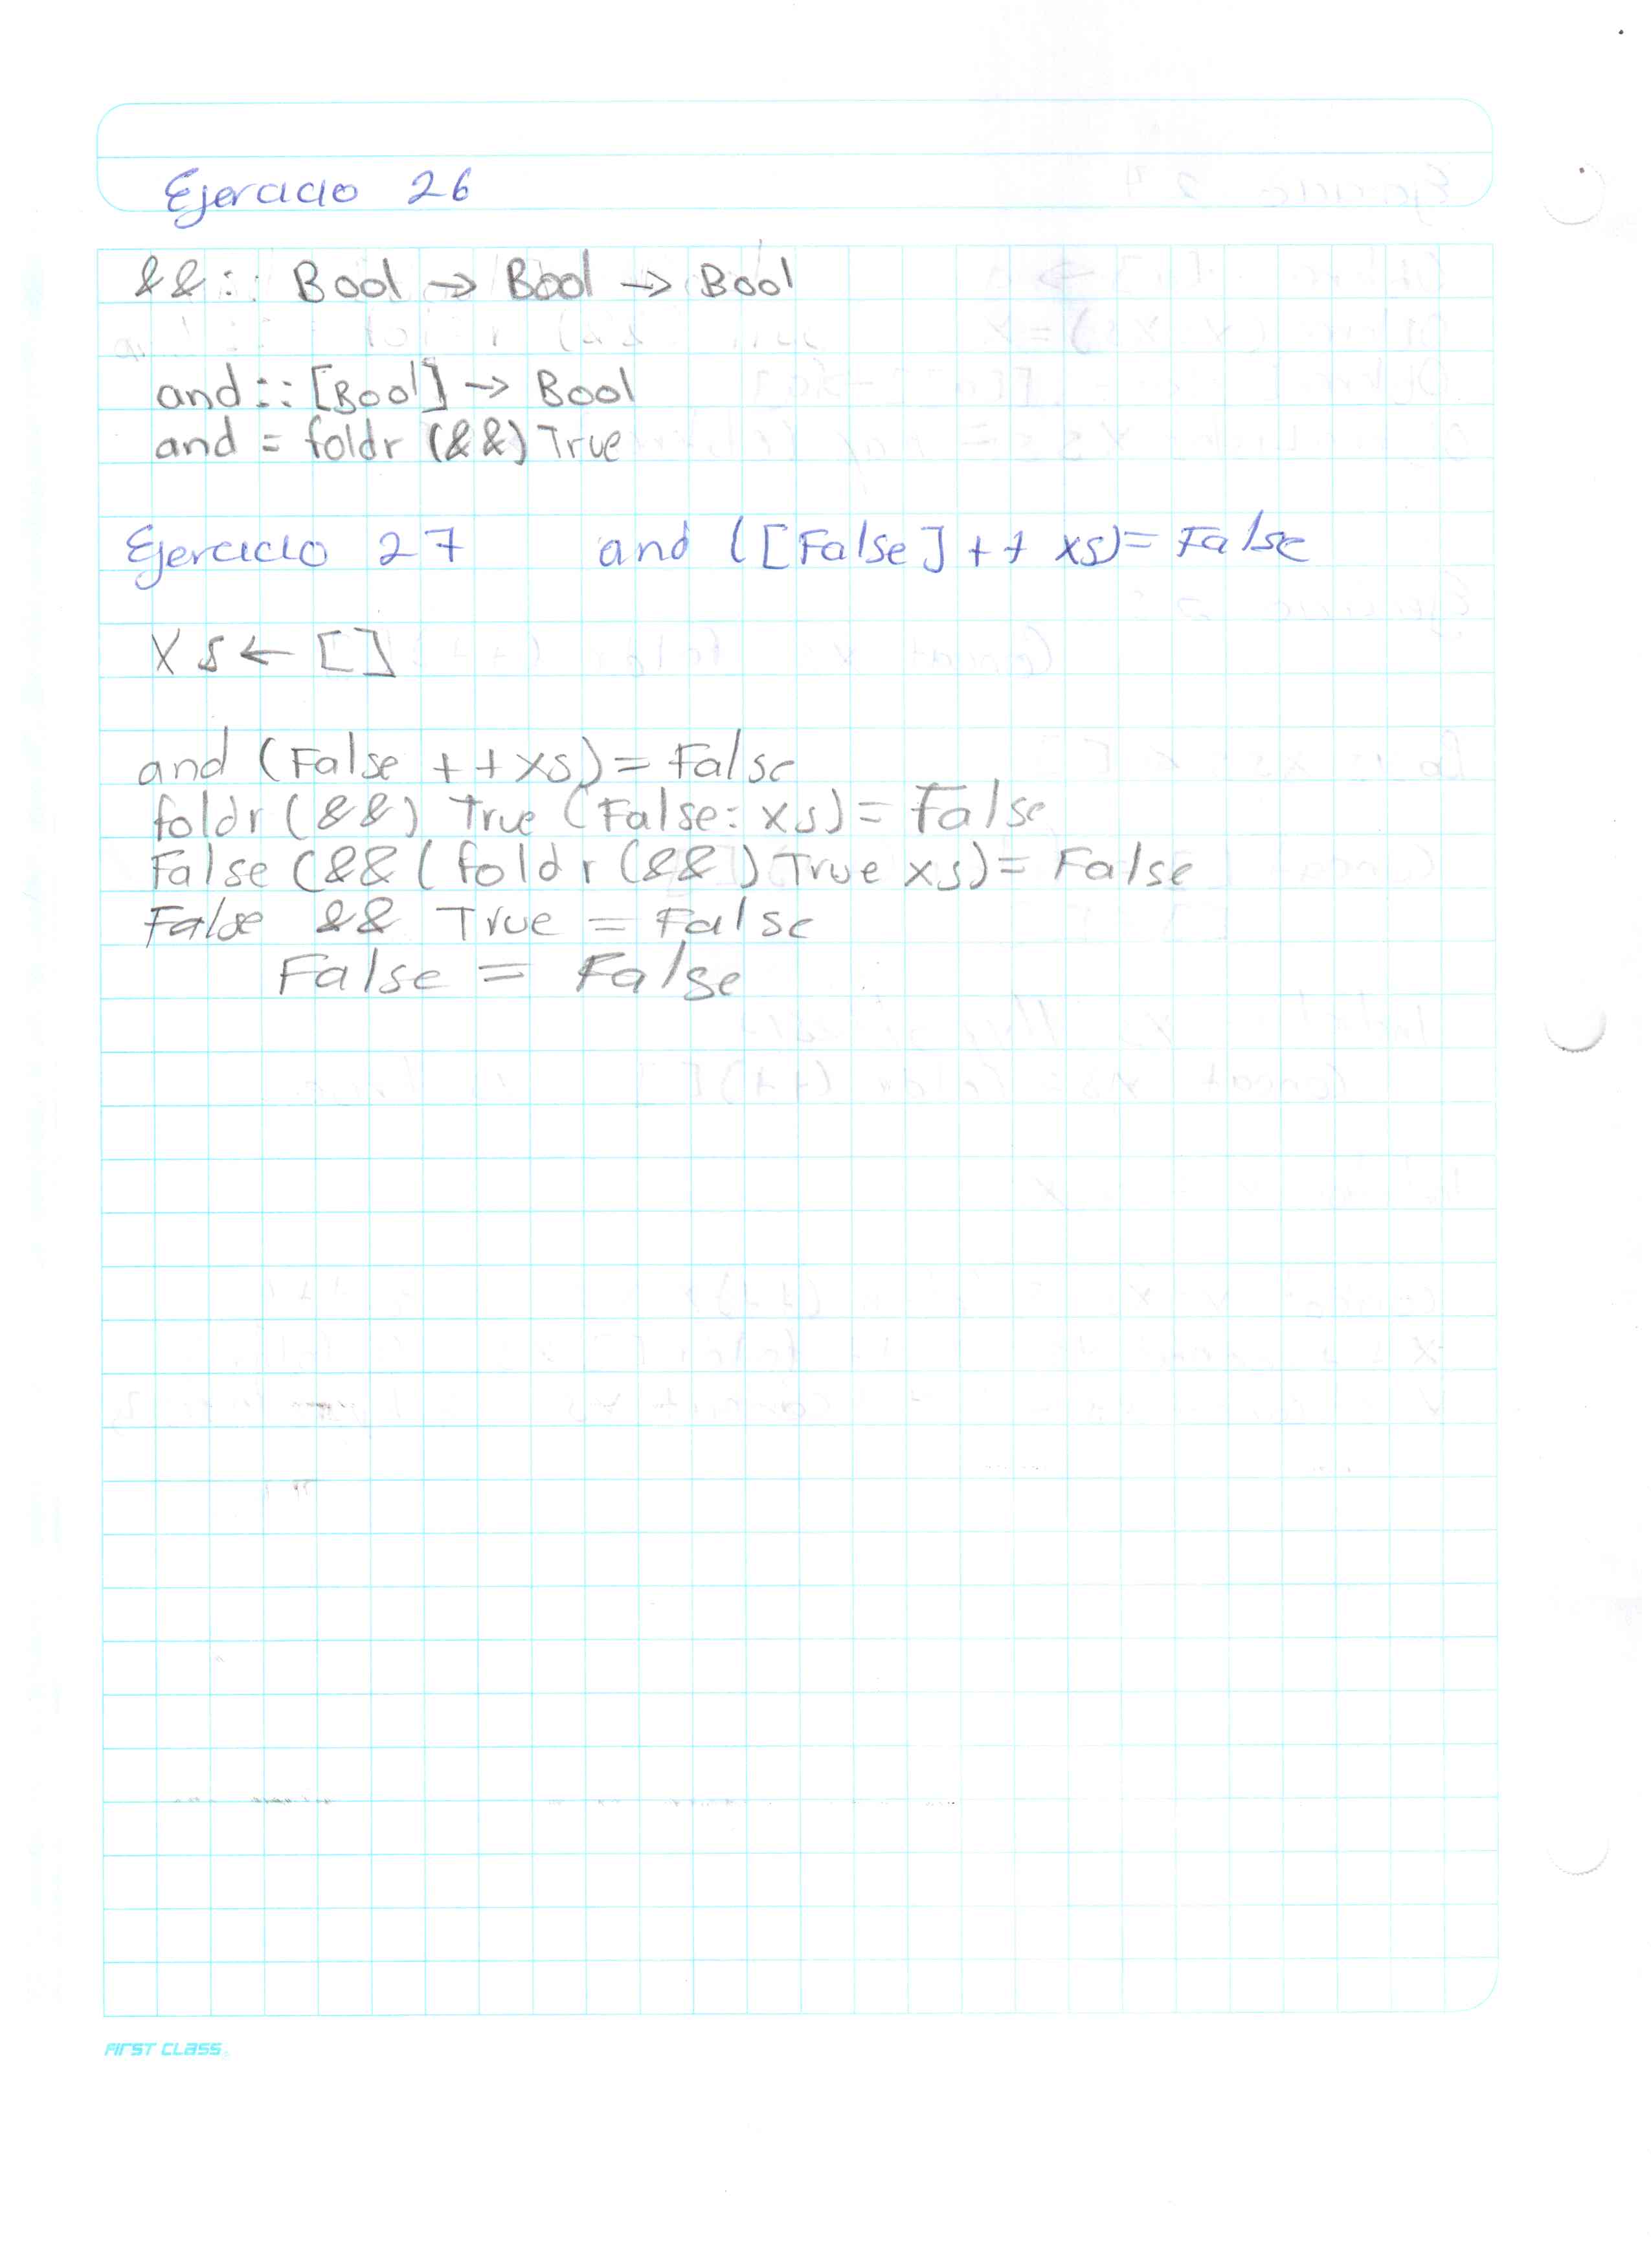 Ejercicio 26
&& :: Bool → Bool → Bool
and :: [Bool] → Bool
and = foldr (&&) True
Ejercicio 27 and ([False] ++ xs) = False
Xs ← []
and (False ++ xs) = False
foldr (&&) True (False: xs) = False
False (&& (foldr (&&) True xs) = False
False && True = False
False = False
FIRST CLASS